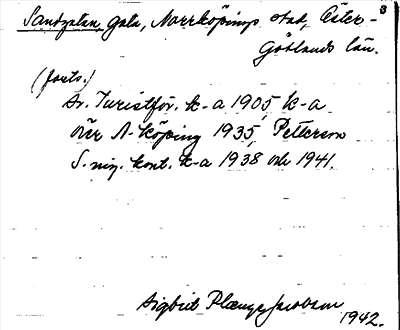 3
Sandgatan, gata, Norrköpings stad, Öster-
götlands län.
(forts.)
Sv. Turistför. k-a 1905, k-a
över N-köping 1935, Petterson
S. niz. kont. k-a 1938 och 1941.
Sigbrit Plænge Jacobson
1942.